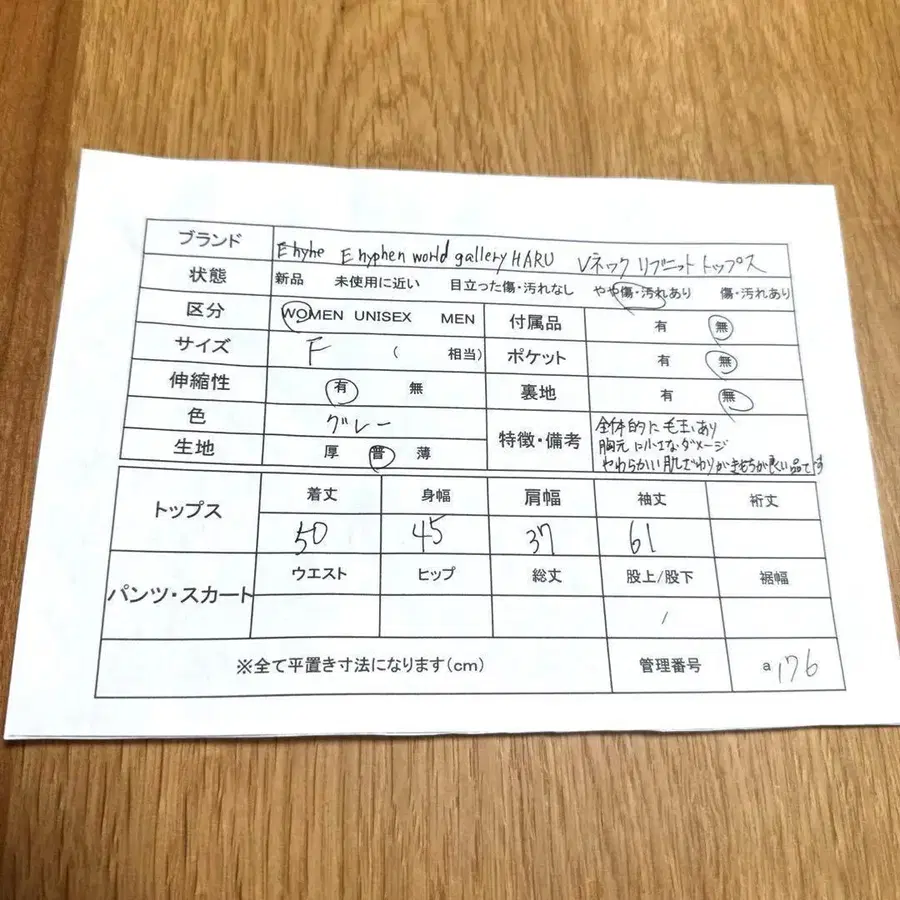 ブランド Ehyhe Ehyphen world gallery HARU Vネック リブニット トップス
状態 新品 未使用に近い 目立った傷・汚れなし やや傷・汚れあり 傷・汚れあり
区分 WOMEN UNISEX MEN 付属品 有 無
サイズ F ( 相当) ポケット 有 無
伸縮性 有 無 裏地 有 無
色 グレー 特徴・備考 全体的に毛玉あり
胸元に小さなダメージ
やわらかい肌ざわりがきもちが良い品です
生地 厚 普 薄
トップス 着丈 身幅 肩幅 袖丈 裄丈
50 45 37 61
パンツ・スカート ウエスト ヒップ 総丈 股上/股下 裾幅
/
※全て平置き寸法になります(cm) 管理番号 a176